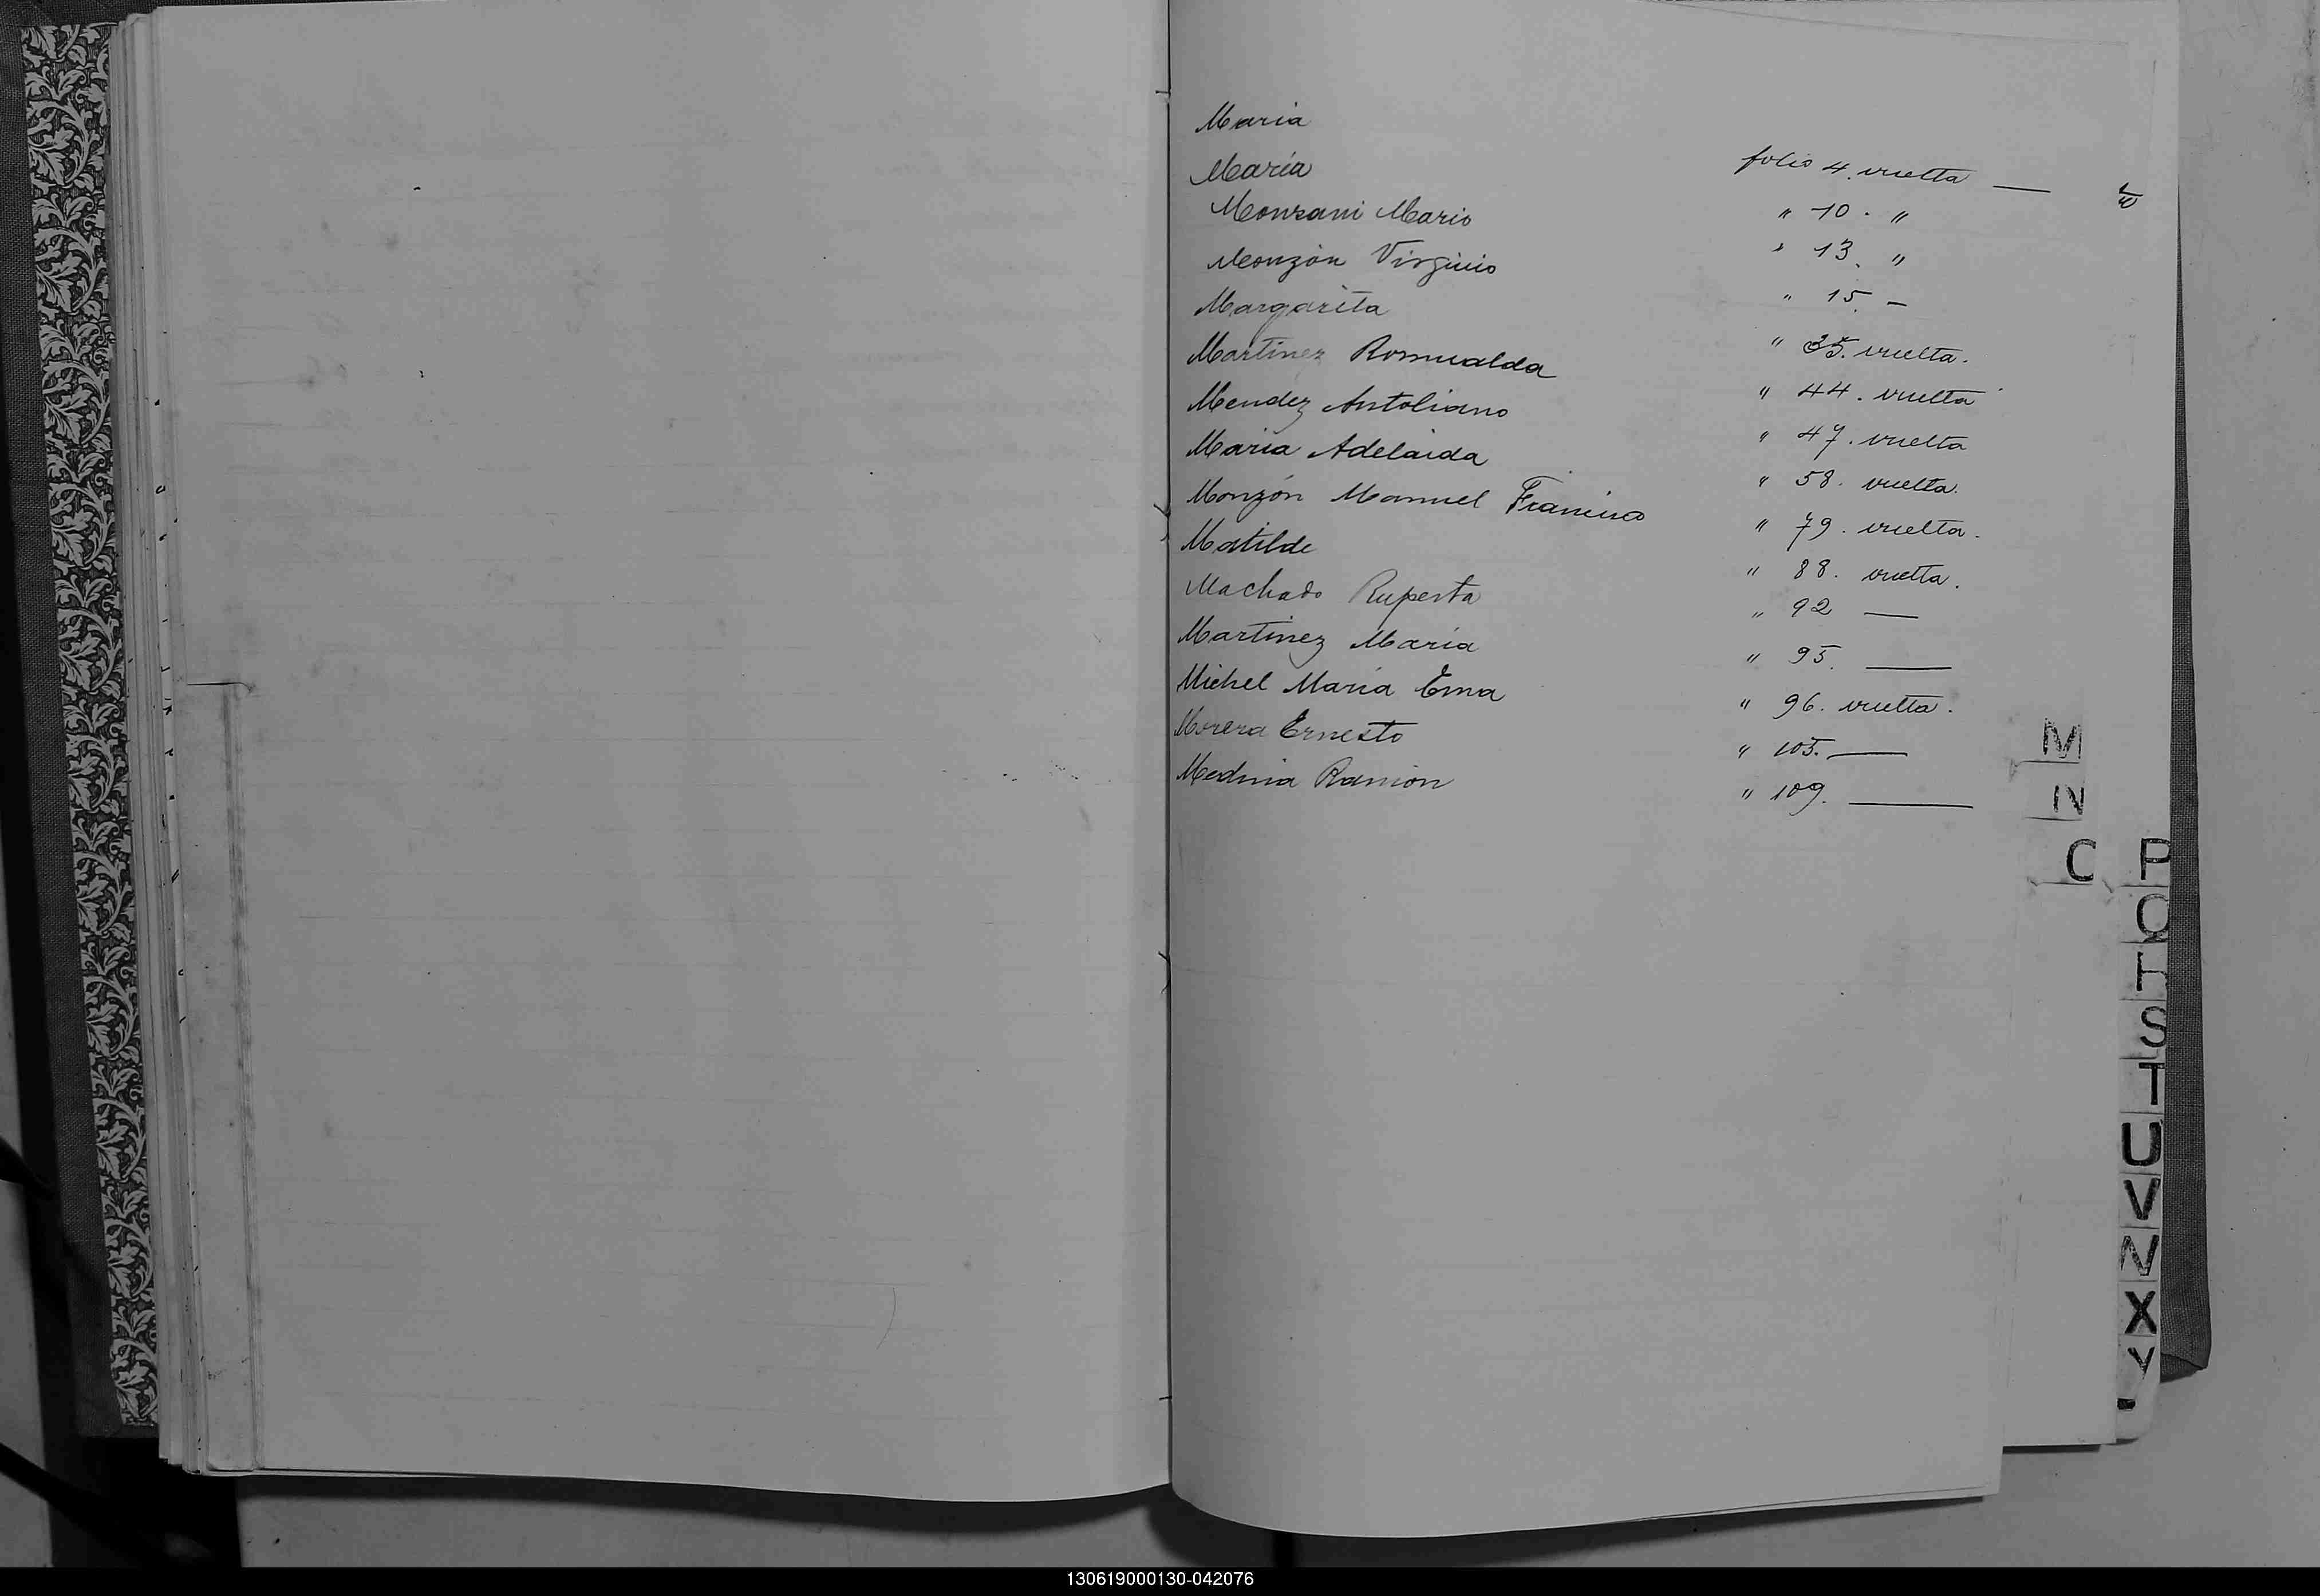 Maria folio 4. vuelta —
María " 10. "
Monzani Mario " 13. "
Monzón Virginio " 15. —
Margarita " 35. vuelta.
Martinez Romualda " 44. vuelta
Mendez Antoliano " 47. vuelta
María Adelaida " 58. vuelta.
Monzón Manuel Francisco " 79. vuelta.
Matilde " 88. vuelta.
Machado Ruperta " 92 —
Martinez María " 95. —
Michel María Ema " 96. vuelta.
Morera Ernesto " 105. —
Medina Ramón " 109. —
M
N
O
P
Q
R
S
T
U
V
X
Y
130619000130-042076